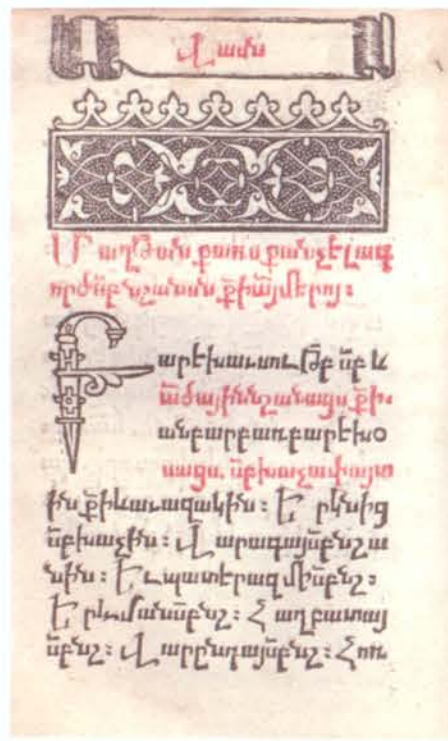 Վասն
Մաղթանս քառս քանչելագ
ործ սբ նշանս քի այ մերոյ:
Բարեխաւսութբ սբ և
ածային նշանացս քի.
անբարբառ բարեխօ
սացս. սբ խաչափայտ
ին քի և աւազակին: Երկնից
սբ խաչին: Վարագայ սբ նշա
նին: Եւ պատերազմի սբ նշ:
Երևման սբ նշ: Հաղբատայ
սբ նշ: Վարընդայ սբ նշ: Հոռ